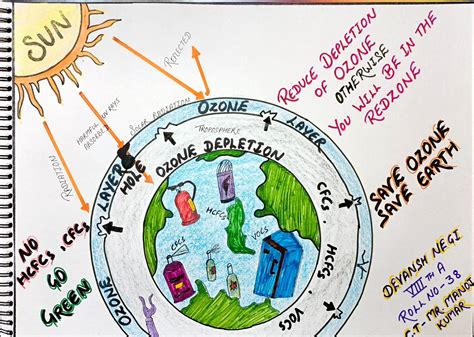 SUN
REFLECTED
REDUCE DEPLETION
OF OZONE
OTHERWISE
YOU WILL BE IN THE
REDZONE
HARMFUL SUN RAYS
ABSORBED
SOLAR RADIATION
RADIATION
OZONE
LAYER
TROPOSPHERE
LAYER
HOLE
OZONE DEPLETION
OZONE
CFCs, HCFCs, VOCs
HCFCs
VOCs
CFCs
SAVE OZONE
SAVE EARTH
NO
HCFCs, CFCs
GO
GREEN
DEVANSH NEGI
VIII TH A
ROLL NO-38
C.T- MR. MANOJ
KUMAR